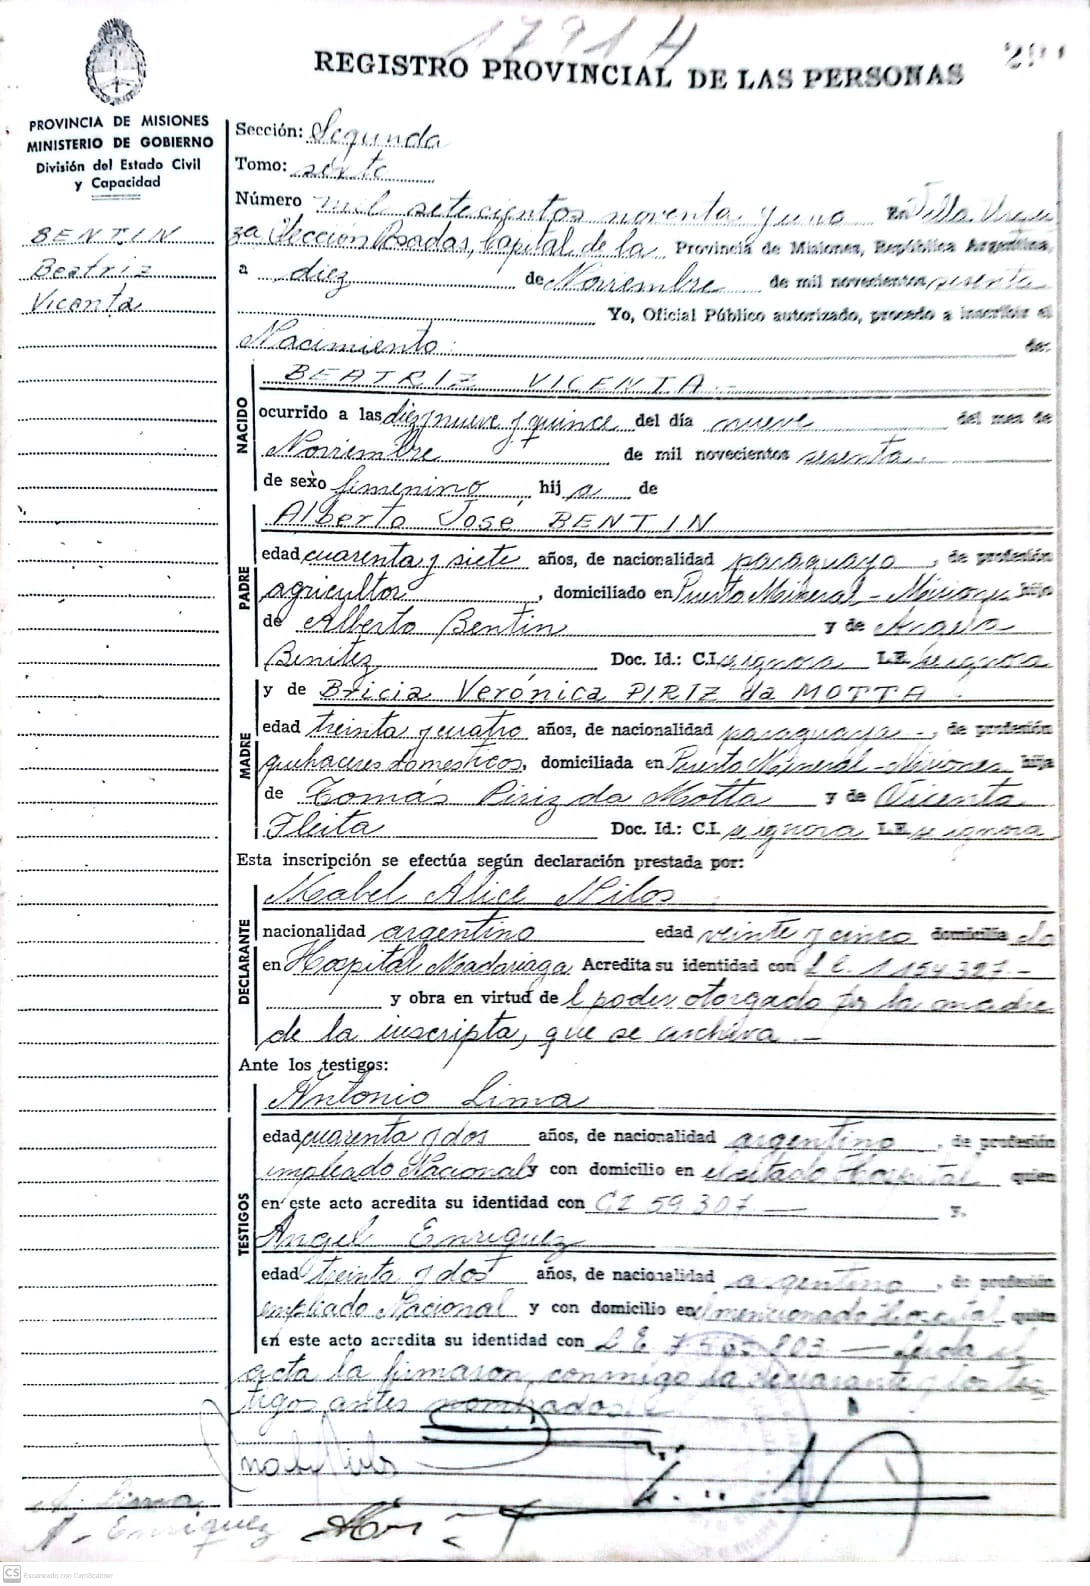 1791 H
REGISTRO PROVINCIAL DE LAS PERSONAS
PROVINCIA DE MISIONES
MINISTERIO DE GOBIERNO
División del Estado Civil
y Capacidad
BENTIN
Beatriz
Vicenta
Sección: Segunda
Tomo: sexto
Número mil setecientos noventa y uno En Villa Urqui
za Sección Posadas, Capital de la Provincia de Misiones, República Argentina,
a diez de Noviembre de mil novecientos sesenta
Yo, Oficial Público autorizado, procedo a inscribir el
Nacimiento: de:
NACIDO
BEATRIZ VICENTA.-
ocurrido a las diez y nueve y quince del día nueve del mes de
Noviembre de mil novecientos sesenta.
de sexo femenino hij a de
PADRE
Alberto José BENTIN
edad cuarenta y siete años, de nacionalidad paraguaya, de profesión
agricultor, domiciliado en Puerto Mineral - Misiones hijo
de Alberto Bentin y de Angela
Benitez Doc. Id.: C.I. se ignora L.E. se ignora
MADRE
y de Bricia Verónica PIRIZ da MOTTA.
edad treinta y cuatro años, de nacionalidad paraguaya -, de profesión
quehaceres domésticos, domiciliada en Puerto Mineral - Misiones hija
de Tomás Piriz da Motta y de Vicenta
Fleita Doc. Id.: C.I. se ignora L.E. se ignora
Esta inscripción se efectúa según declaración prestada por:
DECLARANTE
Mabel Alice Nilos
nacionalidad argentino edad veinte y cinco domicilia da
en Hospital Madariaga Acredita su identidad con L.C. 1154327.-
y obra en virtud de l poder otorgado por la madre
de la inscripta, que se archiva.-
Ante los testigos:
TESTIGOS
Antonio Lima
edad cuarenta y dos años, de nacionalidad argentino, de profesión
empleado Nacional y con domicilio en el citado Hospital quien
en este acto acredita su identidad con CI 59.307.— y.
Angel Enriquez
edad treinta y dos años, de nacionalidad argentino, de profesión
empleado Nacional y con domicilio en el mencionado Hospital quien
en este acto acredita su identidad con L E 7 203.— Leida el
acta la firmaron, conmigo la declarante y los tes
tigos antes nombrados
A. Lima
A - Enriquez
CS Escaneado con CamScanner